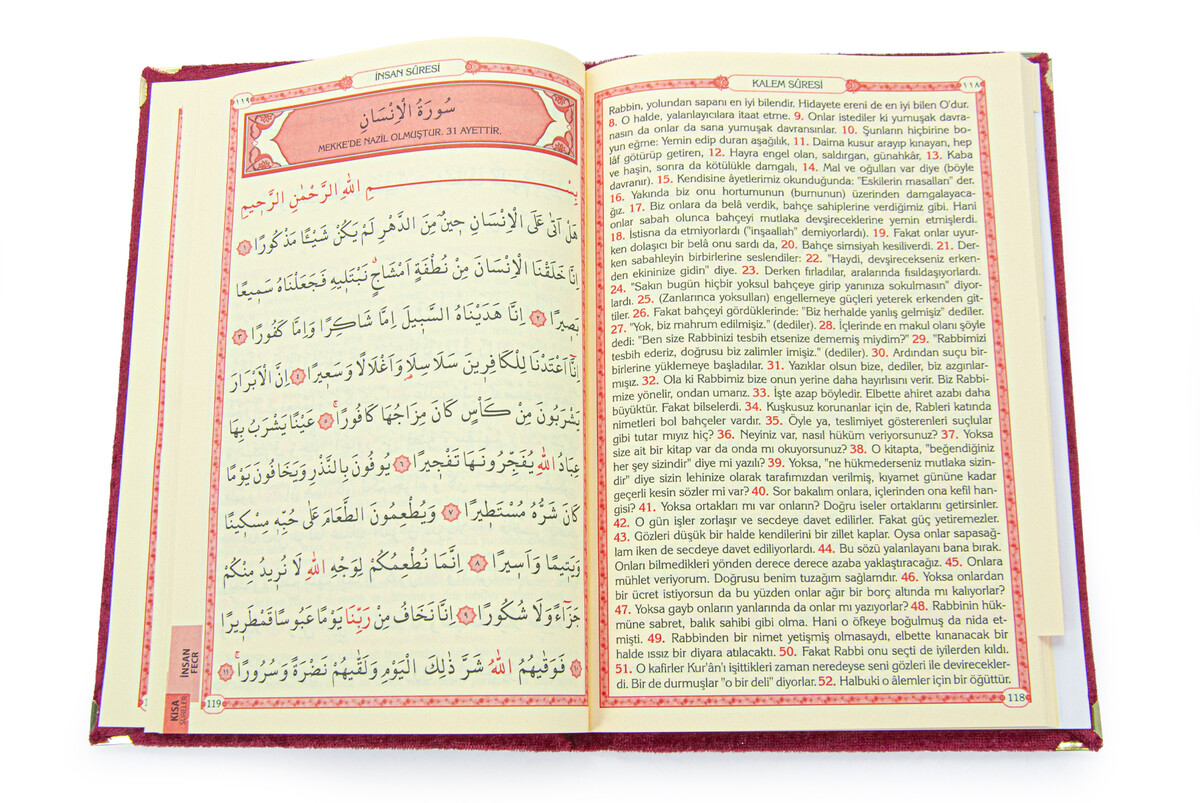 KALEM SÛRESİ
١١٨
Rabbin, yolundan sapanı en iyi bilendir. Hidayete ereni de en iyi bilen O'dur.
8. O halde, yalanlayıcılara itaat etme. 9. Onlar istediler ki yumuşak davra-
nasın da onlar da sana yumuşak davransınlar. 10. Şunların hiçbirine bo-
yun eğme: Yemin edip duran aşağılık, 11. Daima kusur arayıp kınayan, hep
lâf götürüp getiren, 12. Hayra engel olan, saldırgan, günahkâr, 13. Kaba
ve haşin, sonra da kötülükle damgalı, 14. Mal ve oğulları var diye (böyle
davranır). 15. Kendisine âyetlerimiz okunduğunda: "Eskilerin masalları" der.
16. Yakında biz onu hortumunun (burnunun) üzerinden damgalayaca-
ğız. 17. Biz onlara da belâ verdik, bahçe sahiplerine verdiğimiz gibi. Hani
onlar sabah olunca bahçeyi mutlaka devşireceklerine yemin etmişlerdi.
18. İstisna da etmiyorlardı ("inşaallah" demiyorlardı). 19. Fakat onlar uyur-
ken dolaşıcı bir belâ onu sardı da, 20. Bahçe simsiyah kesiliverdi. 21. Der-
ken sabahleyin birbirlerine seslendiler: 22. "Haydi, devşirecekseniz erken-
den ekininize gidin" diye. 23. Derken fırladılar, aralarında fısıldaşıyorlardı.
24. "Sakın bugün hiçbir yoksul bahçeye girip yanınıza sokulmasın" diyor-
lardı. 25. (Zanlarınca yoksulları) engellemeye güçleri yeterek erkenden git-
tiler. 26. Fakat bahçeyi gördüklerinde: "Biz herhalde yanlış gelmişiz" dediler.
27. "Yok, biz mahrum edilmişiz." (dediler). 28. İçlerinden en makul olanı şöyle
dedi: "Ben size Rabbinizi tesbih etsenize dememiş miydim?" 29. "Rabbimizi
tesbih ederiz, doğrusu biz zalimler imişiz." (dediler). 30. Ardından suçu bir-
birlerine yüklemeye başladılar. 31. Yazıklar olsun bize, dediler, biz azgınlar-
mışız. 32. Ola ki Rabbimiz bize onun yerine daha hayırlısını verir. Biz Rabbi-
mize yönelir, ondan umarız. 33. İşte azap böyledir. Elbette ahiret azabı daha
büyüktür. Fakat bilselerdi. 34. Kuşkusuz korunanlar için de, Rableri katında
nimetleri bol bahçeler vardır. 35. Öyle ya, teslimiyet gösterenleri suçlular
gibi tutar mıyız hiç? 36. Neyiniz var, nasıl hüküm veriyorsunuz? 37. Yoksa
size ait bir kitap var da onda mı okuyorsunuz? 38. O kitapta, "beğendiğiniz
her şey sizindir" diye mi yazılı? 39. Yoksa, "ne hükmederseniz mutlaka sizin-
dir" diye sizin lehinize olarak tarafımızdan verilmiş, kıyamet gününe kadar
geçerli kesin sözler mi var? 40. Sor bakalım onlara, içlerinden ona kefil han-
gisi? 41. Yoksa ortakları mı var onların? Doğru iseler ortaklarını getirsinler.
42. O gün işler zorlaşır ve secdeye davet edilirler. Fakat güç yetiremezler.
43. Gözleri düşük bir halde kendilerini bir zillet kaplar. Oysa onlar sapasağ-
lam iken de secdeye davet ediliyorlardı. 44. Bu sözü yalanlayanı bana bırak.
Onları bilmedikleri yönden derece derece azaba yaklaştıracağız. 45. Onlara
mühlet veriyorum. Doğrusu benim tuzağım sağlamdır. 46. Yoksa onlardan
bir ücret istiyorsun da bu yüzden onlar ağır bir borç altında mı kalıyorlar?
47. Yoksa gayb onların yanlarında da onlar mı yazıyorlar? 48. Rabbinin hük-
müne sabret, balık sahibi gibi olma. Hani o öfkeye boğulmuş da nida et-
mişti. 49. Rabbinden bir nimet yetişmiş olmasaydı, elbette kınanacak bir
halde ıssız bir diyara atılacaktı. 50. Fakat Rabbi onu seçti de iyilerden kıldı.
51. O kafirler Kur'ân'ı işittikleri zaman neredeyse seni gözleri ile devirecekler-
di. Bir de durmuşlar "o bir deli" diyorlar. 52. Halbuki o âlemler için bir öğüttür.
118
١١٩
İNSAN SÛRESİ
سُورَةُ الْاِنْسَانِ
MEKKE'DE NAZİL OLMUŞTUR. 31 AYETTİR.
بِسْمِ اللّٰهِ الرَّحْمٰنِ الرَّحٖيمِ
هَلْ اَتٰى عَلَى الْاِنْسَانِ حٖينٌ مِنَ الدَّهْرِ لَمْ يَكُنْ شَيْئًا مَذْكُورًا ١
اِنَّا خَلَقْنَا الْاِنْسَانَ مِنْ نُطْفَةٍ اَمْشَاجٍ نَبْتَلٖيهِ فَجَعَلْنَاهُ سَمٖيعًا
بَصٖيرًا ٢ اِنَّا هَدَيْنَاهُ السَّبٖيلَ اِمَّا شَاكِرًا وَاِمَّا كَفُورًا ٣
اِنَّٓا اَعْتَدْنَا لِلْكَافِرٖينَ سَلَاسِلَا۬ وَاَغْلَالًا وَسَعٖيرًا ٤ اِنَّ الْاَبْرَارَ
يَشْرَبُونَ مِنْ كَأْسٍ كَانَ مِزَاجُهَا كَافُورًا ٥ عَيْنًا يَشْرَبُ بِهَا
عِبَادُ اللّٰهِ يُفَجِّرُونَهَا تَفْجٖيرًا ٦ يُوفُونَ بِالنَّذْرِ وَيَخَافُونَ يَوْمًا
كَانَ شَرُّهُ مُسْتَطٖيرًا ٧ وَيُطْعِمُونَ الطَّعَامَ عَلٰى حُبِّهٖ مِسْكٖينًا
وَيَتٖيمًا وَاَسٖيرًا ٨ اِنَّمَا نُطْعِمُكُمْ لِوَجْهِ اللّٰهِ لَا نُرٖيدُ مِنْكُمْ
جَزَٓاءً وَلَا شُكُورًا ٩ اِنَّا نَخَافُ مِنْ رَبِّنَا يَوْمًا عَبُوسًا قَمْطَرٖيرًا
١٠ فَوَقٰيهُمُ اللّٰهُ شَرَّ ذٰلِكَ الْيَوْمِ وَلَقّٰيهُمْ نَضْرَةً وَسُرُورًا ١١
119
İNSAN
FECR
KISA
SÛRELER